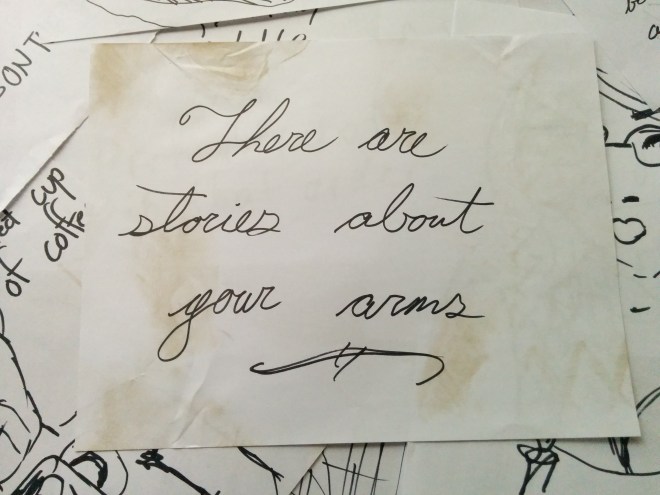 There are
stories about
your arms
ONT
cup
of coffe